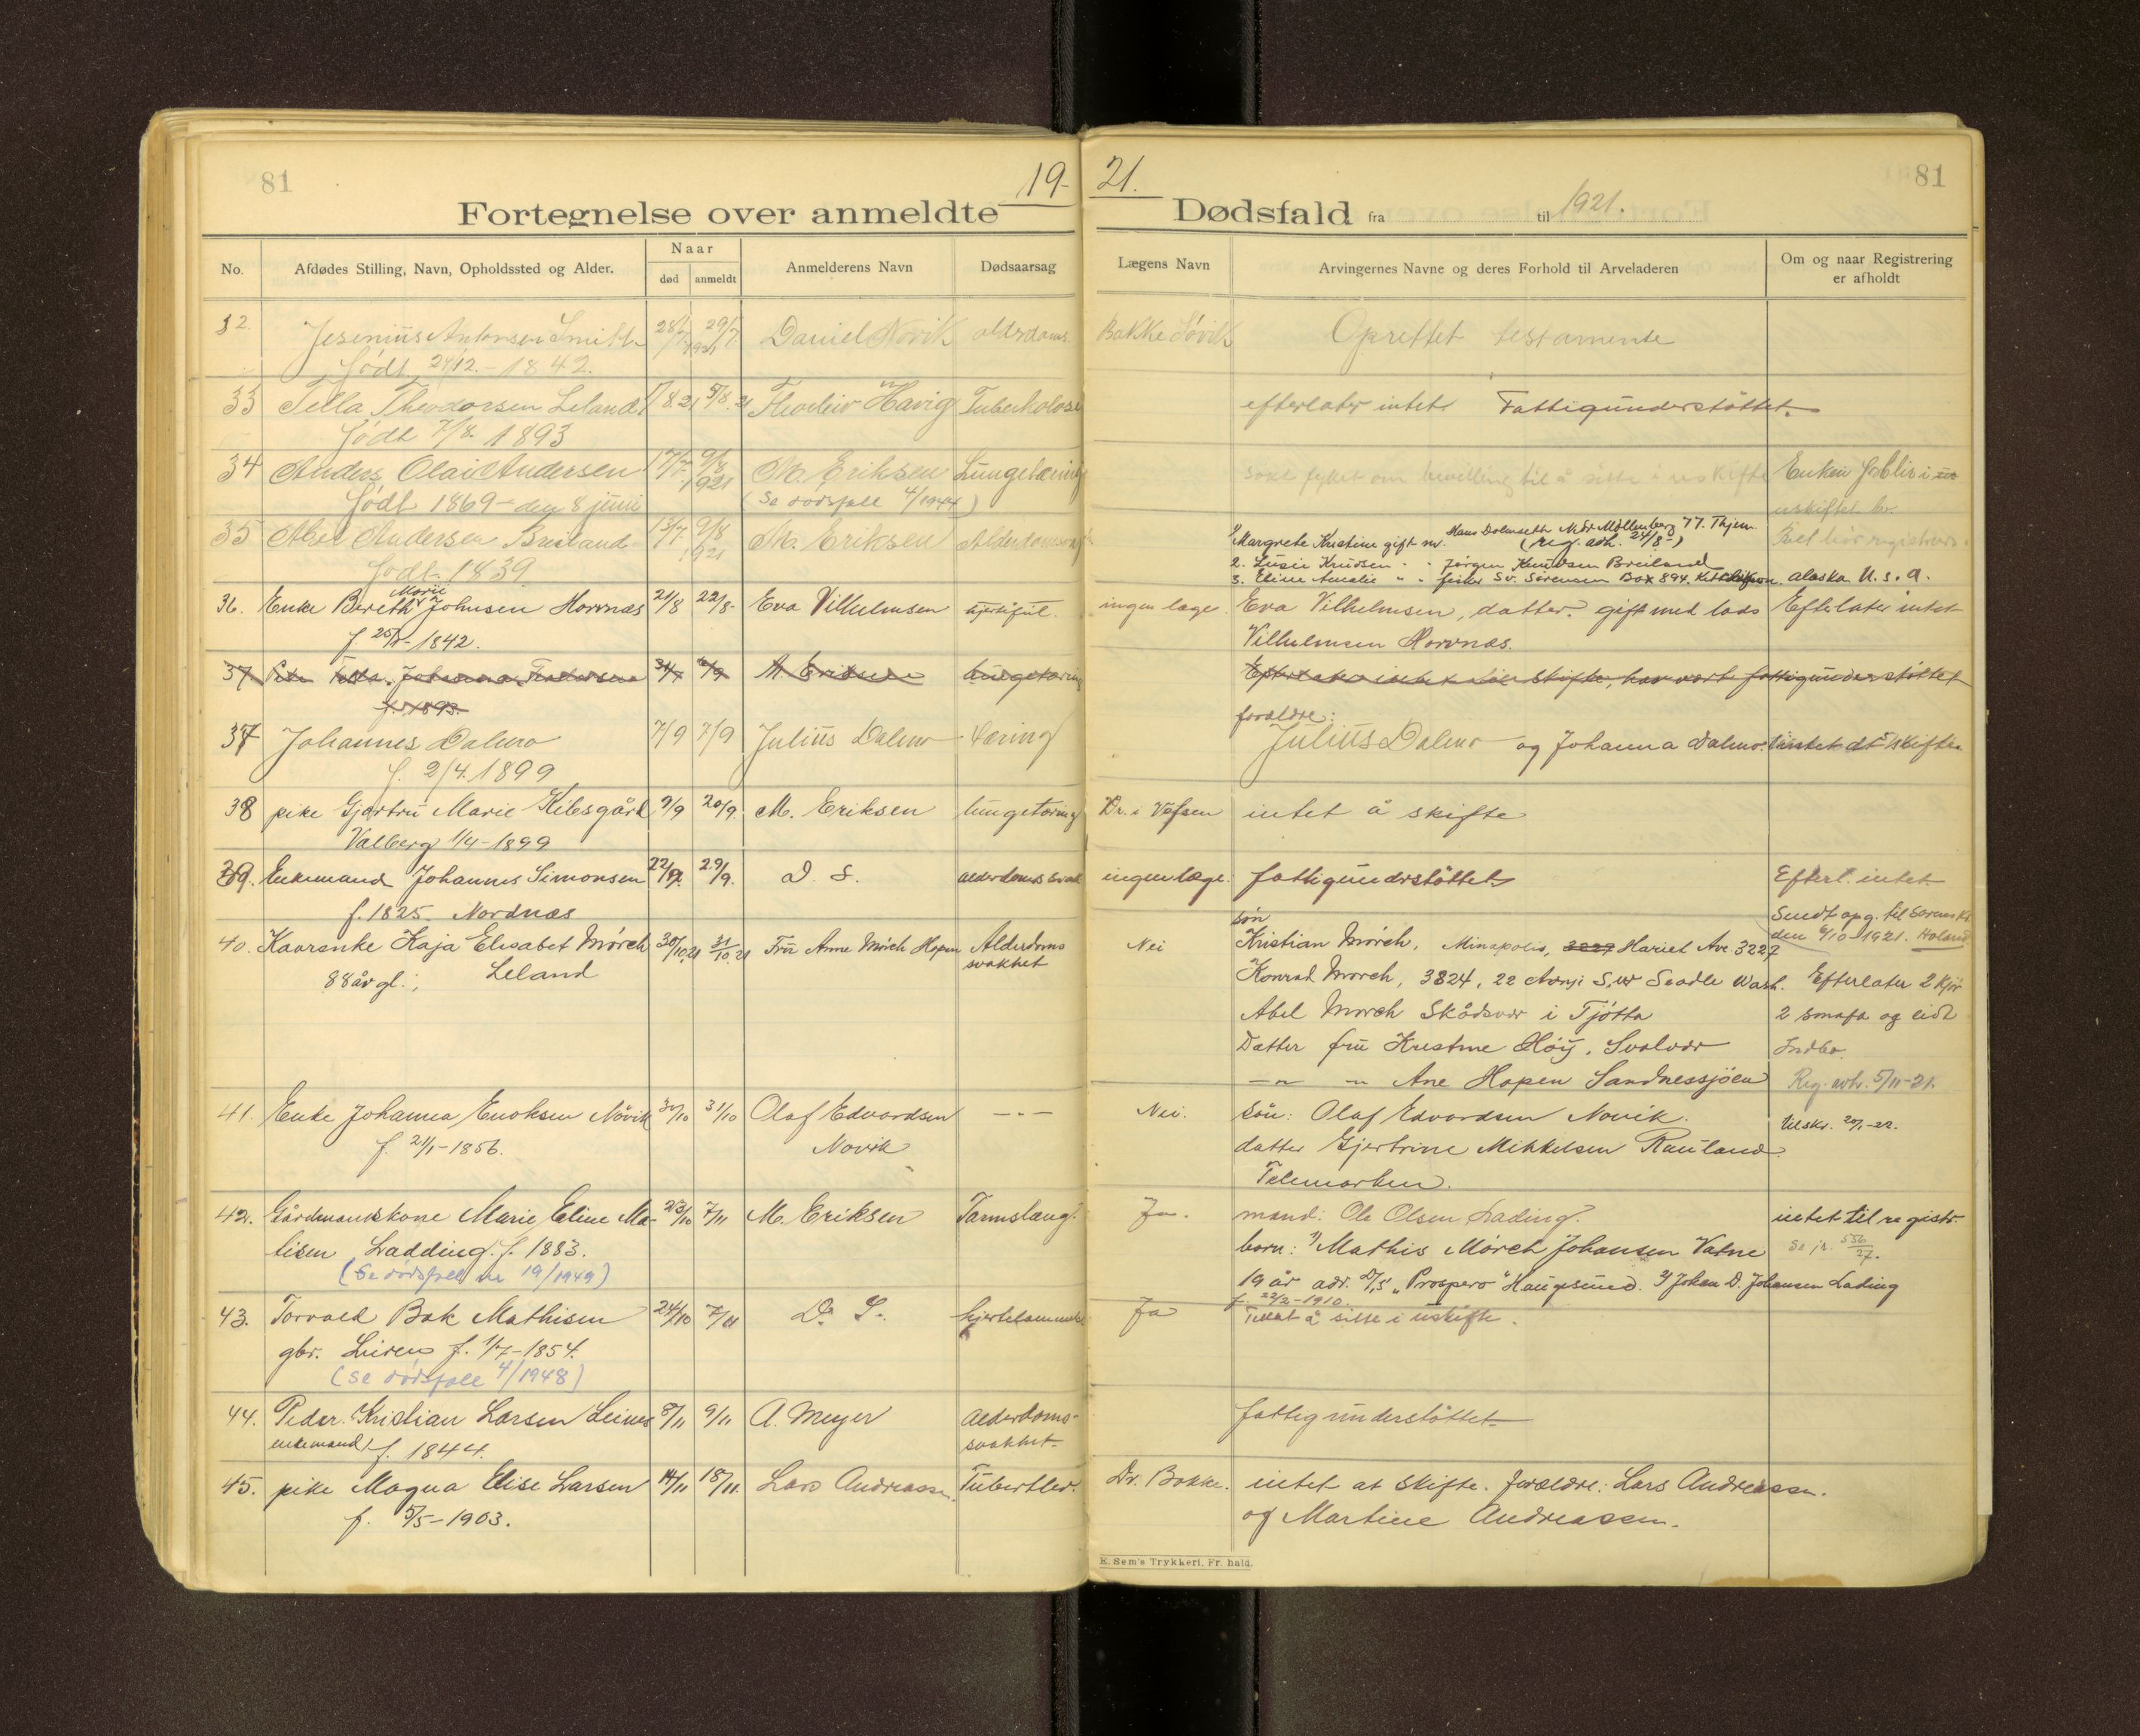 81
19-
21.
81
Fortegnelse over anmeldte
Dødsfald fra til 1921.
No.
Afdødes Stilling, Navn, Opholdssted og Alder.
Naar
død anmeldt
Anmelderens Navn
Dødsaarsag
Lægens Navn
Arvingernes Navne og deres Forhold til Arveladeren
Om og naar Registrering
er afholdt
32. Jesenius Antonsen Smith 28/7 29/7 1921 Daniel Novik alderdoms. Bakke Søvik Oprettet testamente
født 24/12.-1842.
33 Tella Theodorsen Leland 1/8.21 5/8.21 Havig Tuberkolose efterlater intet Fattigunderstøttet.
født 7/8. 1893
34 Anders Olai Andersen 17/7 9/8 1921 M. Eriksen Lungetæring søkt fylket om bevilling til å sitte i uskifte Enken
født 1869 - den 8 juni (se dødsfall 4/1944)
uskiftet bo.
35 Andersen Breiland 13/7 9/8 1921 M. Eriksen
født 1839
1/ Margrete Kristine gift m. Hans Dolmseth Møllenberg 77. Thjem.
(reg. adh. 24/8-)
2. Lusie Knudsen " " Jørgen Knudsen Breiland
3. Eline Amalie " " fisker Sv. Sørensen Box 894. Ketchikan. Alaska U.S.A.
36. Enke Bereth Marie Johnsen Horvnæs 21/8 22/8- Eva Vilhelmsen hjertefeil. ingen læge. Eva Vilhelmsen, datter. gift med lods Efterlater intet
f 25/8-1842.
Vilhelmsen Horvnæs.
37 Johanna M. Eriksen Lungetæring Efterlater intet skifte, har vært fattigunderstøttet
f. 1893.
37 Johannes Dalmo 7/9 7/9 Julius Dalmo Tæring forældre: Julius Dalmo og Johanna Dalmo. intet at skifte
f. 2/4.1899
38 pike Gjertru Marie Kilesgård 9/9 20/9. M. Eriksen lungetæring Dr. i Vefsen intet å skifte
Valberg 1/4-1899
39. Enkemand Johannes Simonsen 22/9. 29/9. D. S. alderdomssvak ingen læge. fattigunderstøttet Efterl. intet
f. 1825. Nordnæs
Sendt opg. til Sorensk.
den 6/10-1921. Holand
40. Kaarenke Kaja Elisabet Mørch 30/10.21 31/10.21 Fru Anne Mørch Hopen Alderdoms Nei
88 år gl., Leland svakhet
søn
Kristian Mørch, Minapolis, 3227 Hariet Ave 3227
Konrad Mørch, 3824, 22 S.W Seadle Wash. Efterlater 2 kjør
Abel Mørch Skådsvær i Tjøtta 2 smafa og lidt
Datter fru Kristine Høy, Svolvær Indbo.
-"- " Ane Hopen Sandnessjøen Reg. avh. 5/11-21.
41. Enke Johanna Enoksen Nåvik 30/10 31/10 Olaf Edvardsen -"- Nei. søn: Olaf Edvardsen Novik.
f. 21/1-1856. Novik
Utskr. 20/1-22.
datter Gjertrine Mikkelsen Rauland
Telemarken.
42. Gårdmandskone Marie Eline Ma- 23/10 7/11 M. Eriksen Tarmslang. Ja. mand: Ole Olsen Lading. intet til registr.
tisen Ladding. f. 1883. born: 1/ Mathis Mørch Johansen Vatne Se jr. 556/27.
(se dødsfall nr 19/1949)
19 år adr. D/S "Prospero" Haugesund. 2/ Johan D. Johansen Lading
f. 22/2-1910.
43. Torvald Bak Mathisen 24/10 7/11 D. S. hjertelammelse Ja Tillat å sitte i uskifte.
gbr. Leirem f. 1/7-1854.
(se dødsfall 4/1948)
44. Peder Kristian Larsen Leines 8/11 9/11 A. Meyer Alderdoms- fattigunderstøttet
enkemand f. 1844. svakhet
45. pike Magna Elise Larsen 14/11 18/11. Lars Andreassen. Dr. Bakke. intet at skifte. forældre: Lars Andreassen.
f. 5/5-1903. og Martine Andreassen.
E. Sem's Trykkeri, Fr.hald.